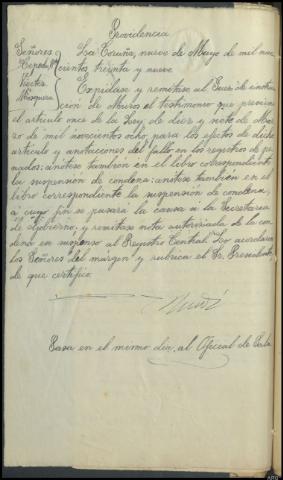 Providencia
Señores La Coruña, nueve de Mayo de mil nove
cientos treinta y nueve
Expídase y remítase al Juez de instruc
ción de Muros el testimonio que previene
el artículo once de la Ley, de diez y siete de Mar
zo de mil novecientos ocho, para los efectos de dicho
artículo y anotaciones del fallo en los registros de pe
nados; anótese también en el libro correspondiente
la suspensión de condena; anótese también en el
libro correspondiente la suspensión de condena,
a cuyo fin se pasara la causa a la Secretaría
de Gobierno; y remítase nota autorizada de la con
dena en suspenso al Registro Central. Lo acordaron
los Señores del margen y rubrica el Sr. Presidente,
de que certifico.
Pasa en el mismo día, al Oficial de Sala